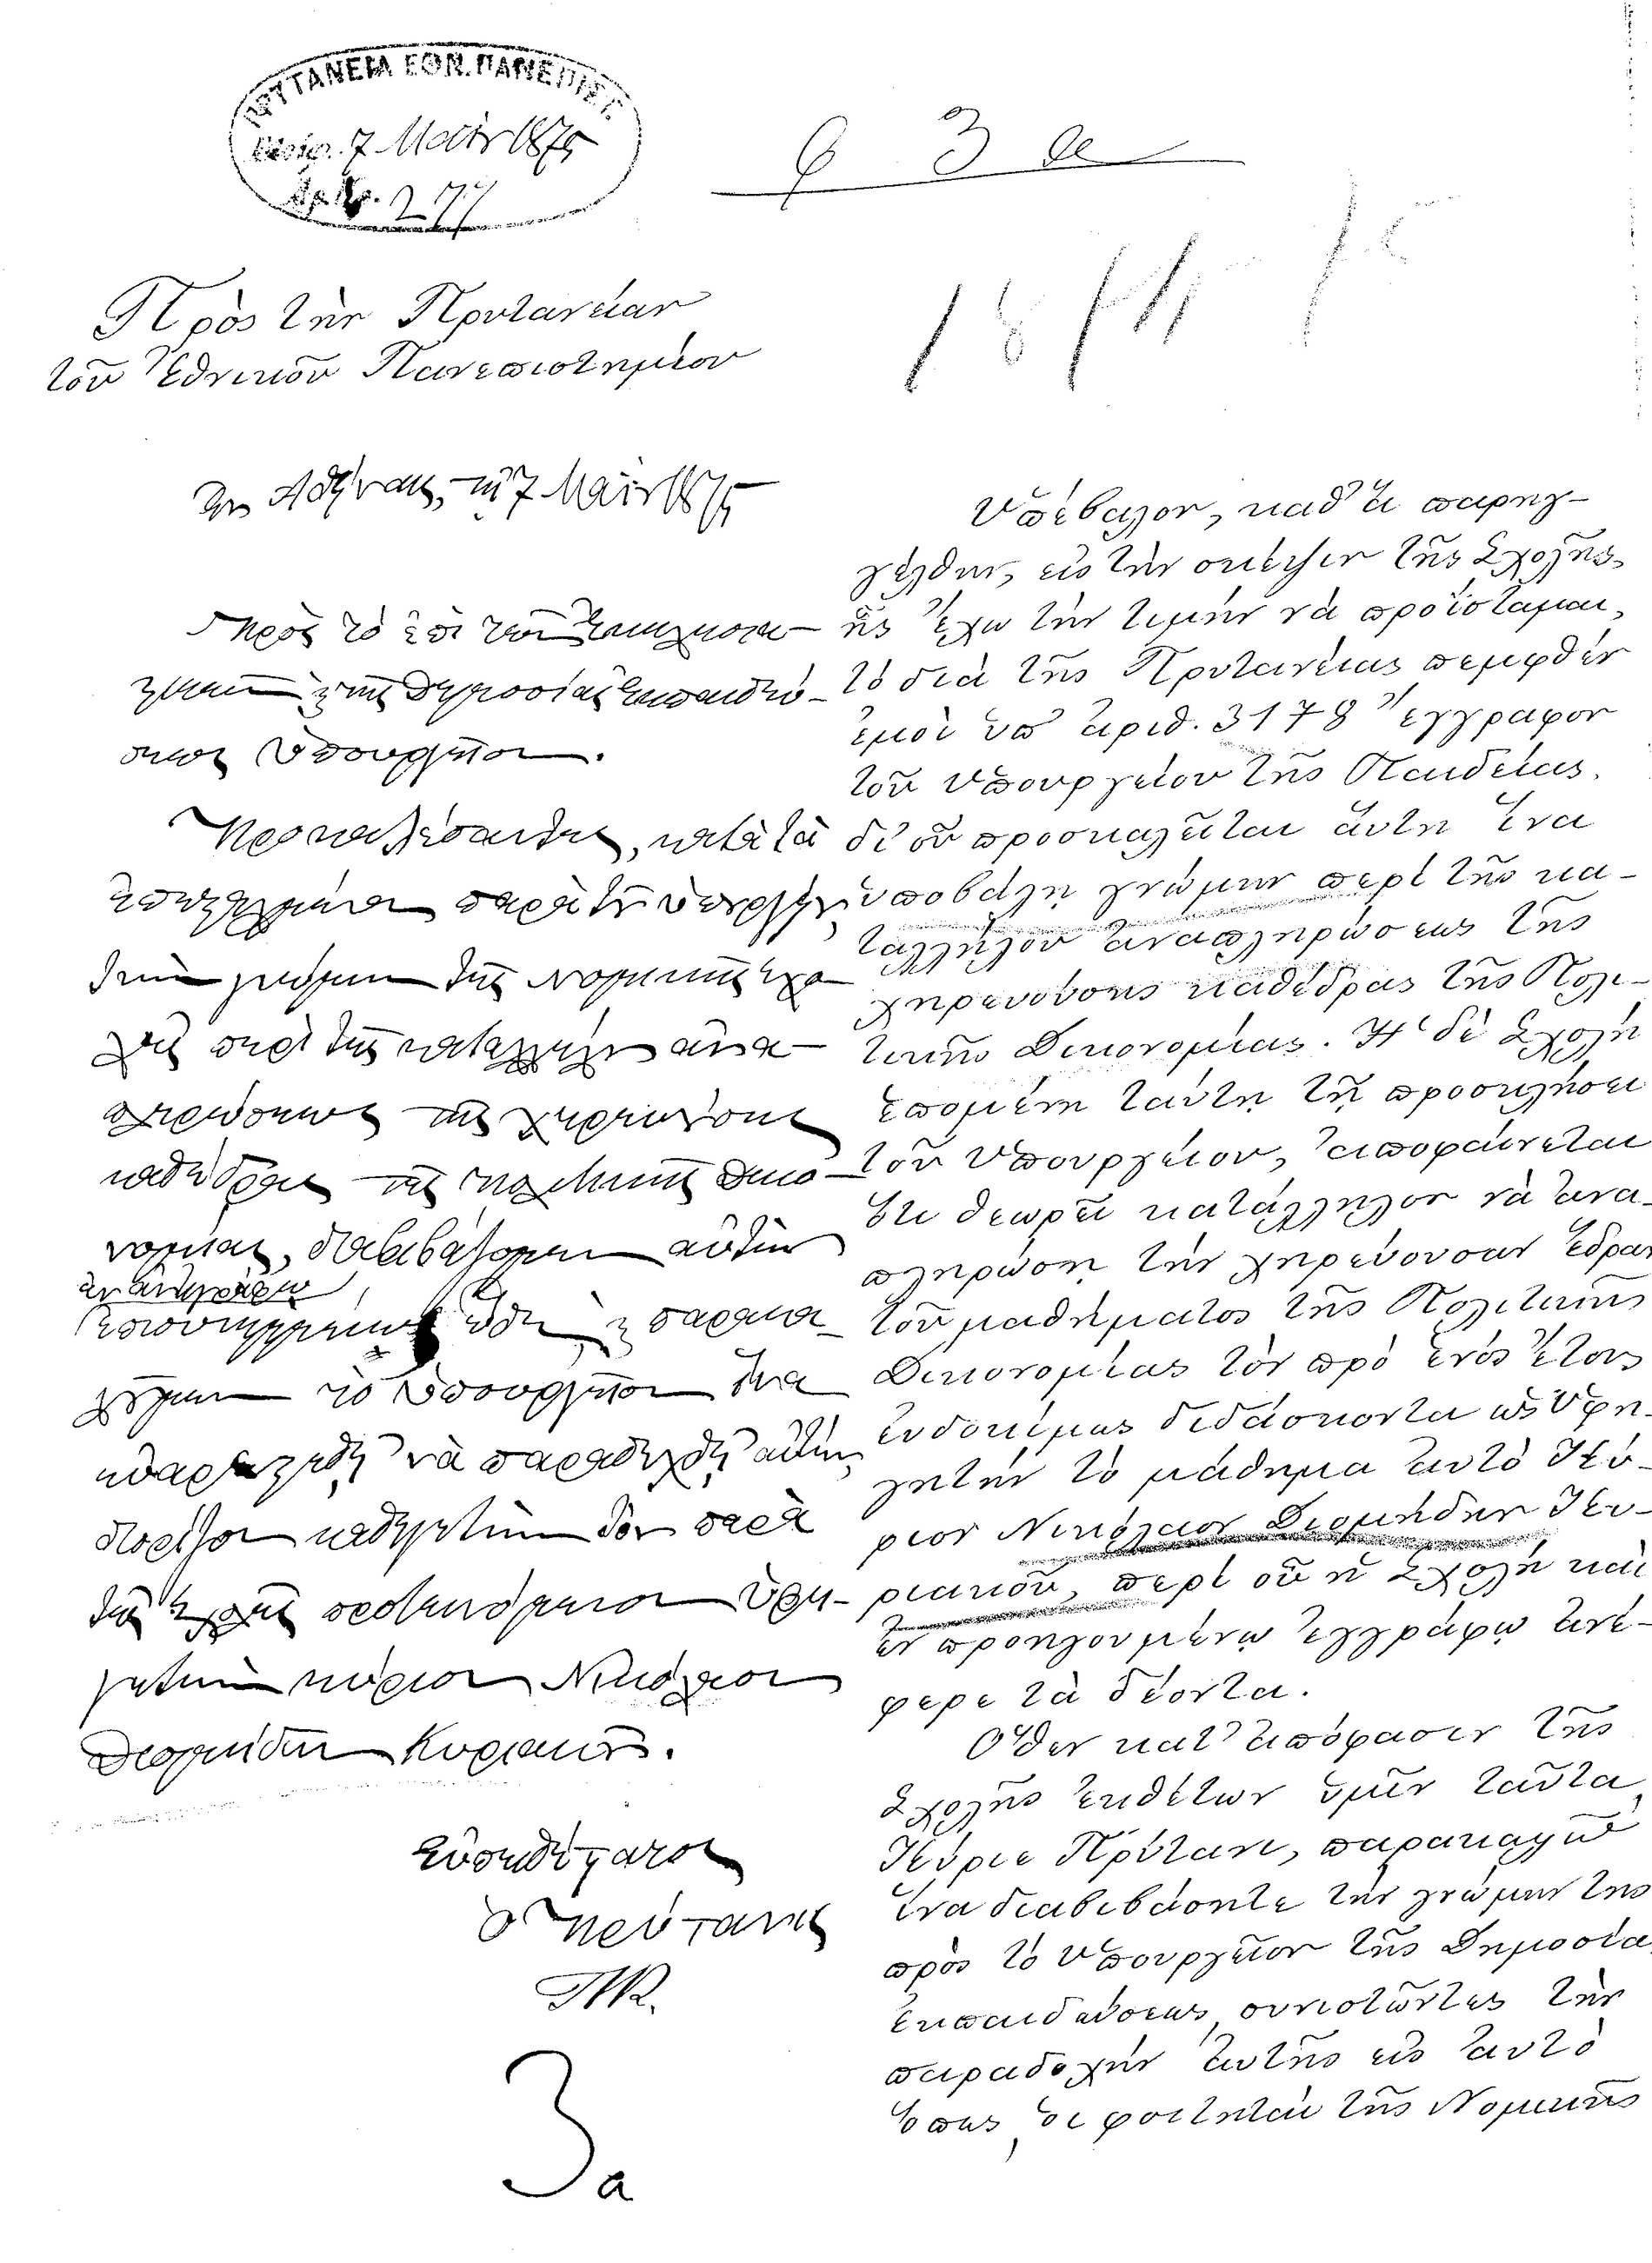 ΠΡΥΤΑΝΕΙΑ ΕΘΝ. ΠΑΝΕΠΙΣΤ.
7 Μαΐου 1875
Αρ. Πρ. 277
3α
18
Πρὸς τὴν Πρυτανείαν
τοῦ Ἐθνικοῦ Πανεπιστημίου
Ἐν Ἀθήναις, τῇ 7 Μαΐου 1875
Πρὸς τὸ ἐπὶ τῶν Ἐκκλησια-
στικῶν καὶ τῆς δημοσίας ἐκπαιδεύ-
σεως Ὑπουργεῖον.
Προσκαλέσαντες, κατὰ τὰ
ἐπεσταλμένα παρὰ τοῦ ὑπουργείου,
τὴν γνώμην τῆς Νομικῆς Σχο-
λῆς περὶ τῆς καταλλήλου ἀνα-
πληρώσεως τῆς χηρευούσης
καθέδρας τῆς Πολιτικῆς Οἰκο-
νομίας, διαβιβάζομεν αὐτὴν
ἐν ἀντιγράφῳ
ὧδε παρακα-
λοῦμεν τὸ Ὑπουργεῖον ἵνα
εὐαρεστηθῇ νὰ παραδεχθῇ αὐτὴν,
καθηγητὴν τὸν παρὰ
τῆς Σχολῆς προτεινόμενον ὑφη-
γητὴν κύριον Νικόλαον
Διομήδην Κυριακοῦ.
Εὐπειθέστατος
Ὁ Πρύτανις
3α
Ὑπέβαλον, καθ' ἃ παρηγ-
γέλθην, εἰς τὴν σκέψιν τῆς Σχολῆς,
ἧς ἔχω τὴν τιμὴν νὰ προΐσταμαι,
τὸ διὰ τῆς Πρυτανείας πεμφθὲν
ἐμοὶ ὑπ' ἀριθ. 3178 ἔγγραφον
τοῦ Ὑπουργείου τῆς Παιδείας,
δι' οὗ προσκαλεῖται αὕτη ἵνα
ὑποβάλῃ γνώμην περὶ τῆς κα-
ταλλήλου ἀναπληρώσεως τῆς
χηρευούσης καθέδρας τῆς Πολι-
τικῆς Οἰκονομίας. Ἡ δὲ Σχολὴ
ἑπομένη ταύτῃ τῇ προσκλήσει
τοῦ Ὑπουργείου, ἀποφαίνεται
ὅτι θεωρεῖ κατάλληλον νὰ ἀνα-
πληρώσῃ τὴν χηρεύουσαν ἕδραν
τοῦ μαθήματος τῆς Πολιτικῆς
Οἰκονομίας τὸν πρὸ ἑνὸς ἔτους
εὐδοκίμως διδάσκοντα ὡς Ὑφη-
γητὴν τὸ μάθημα αὐτὸ Κύ-
ριον Νικόλαον Διομήδην Κυ-
ριακοῦ, περὶ οὗ ἡ Σχολὴ καὶ
ἐν προηγουμένῳ ἐγγράφῳ ἀνέ-
φερε τὰ δέοντα.
Ὅθεν κατ' ἀπόφασιν τῆς
Σχολῆς ἐκθέτων ὑμῖν ταῦτα,
Κύριε Πρύτανι, παρακαλῶ
ἵνα διαβιβάσητε τὴν γνώμην της
πρὸς τὸ Ὑπουργεῖον τῆς Δημοσίας
Ἐκπαιδεύσεως συνιστῶντες τὴν
παραδοχὴν αὐτῆς εἰς αὐτὸ
ὅπως οἱ φοιτηταὶ τῆς Νομικῆς